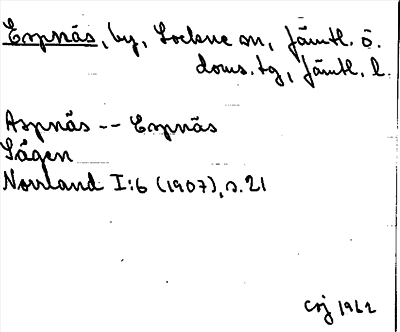 Espnäs, by, Lockne sn, Jämtl. ö.
doms. tg, Jämtl. l.
Aspnäs -- Espnäs
Sägen
Norrland I:6 (1907), s. 21
Csj 1962